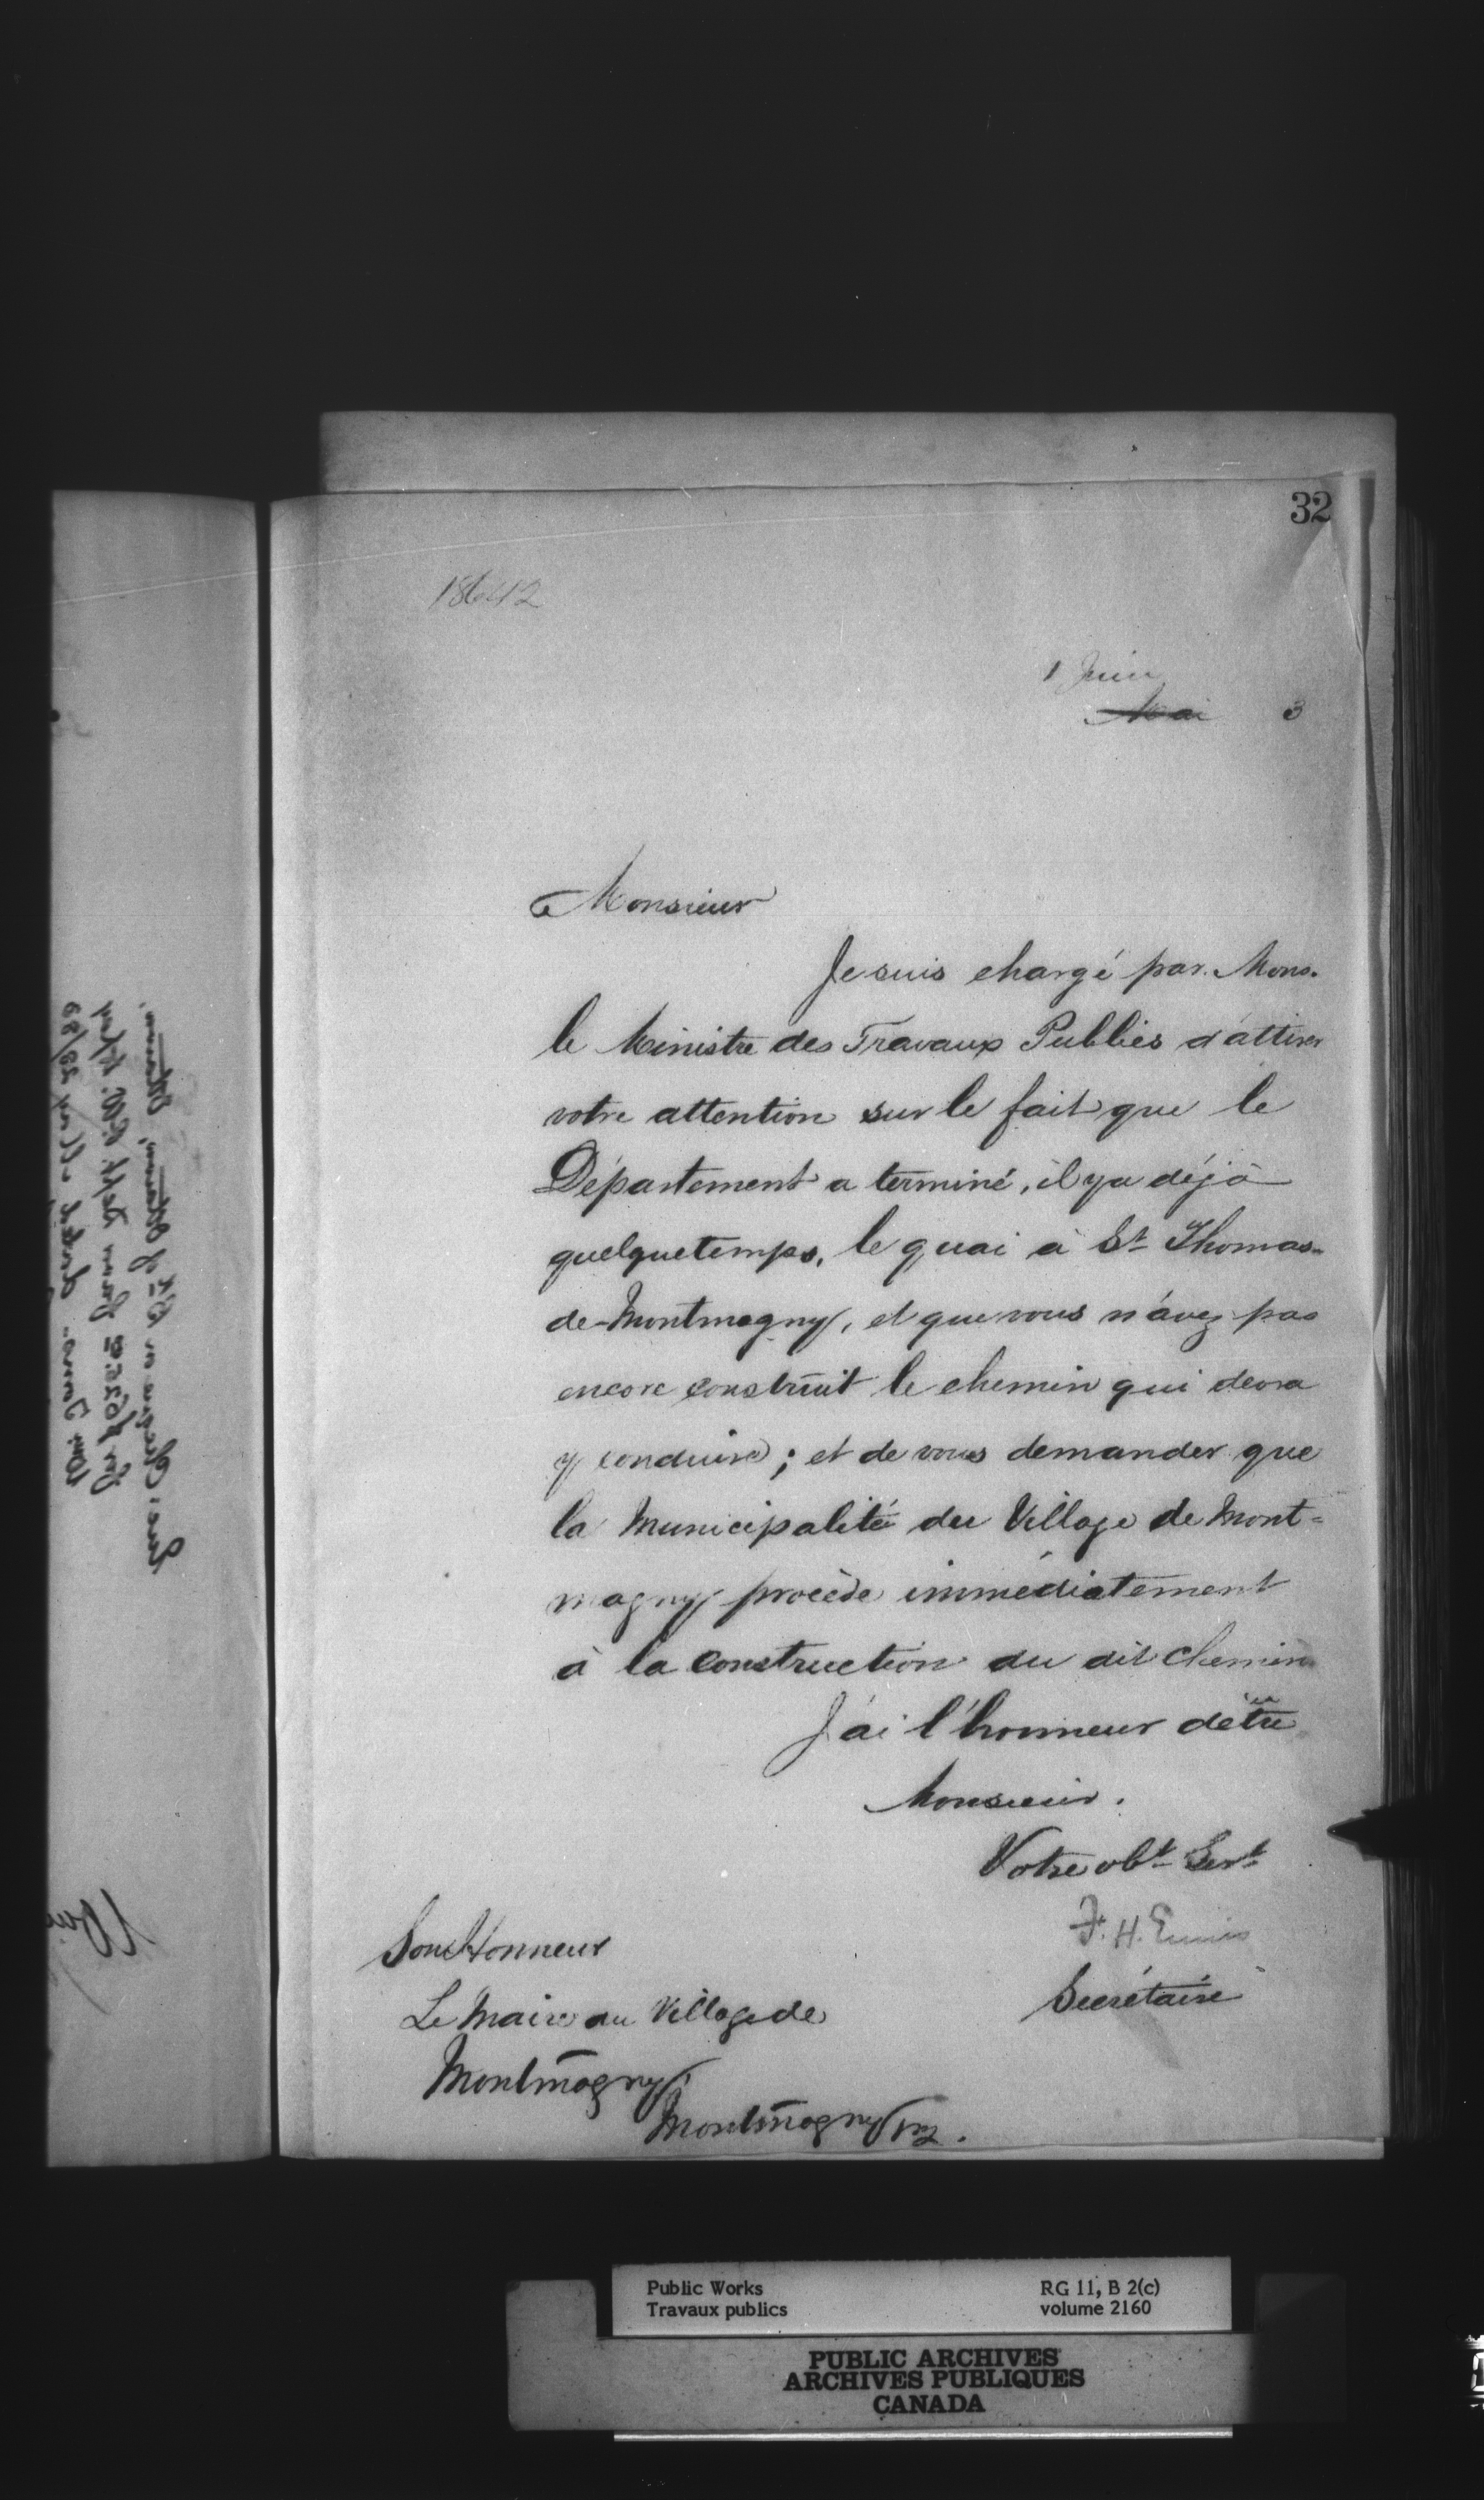 32
18642
1 Juin
Mai 3
Monsieur
Je suis chargé par Mons.
le Ministre des Travaux Publics d'attirer
votre attention sur le fait que le
Département a terminé, il y a déjà
quelque temps, le quai à St Thomas-
de-Montmagny, et que vous n'avez pas
encore construit le chemin qui devra
y conduire; et de vous demander que
la Municipalité du Village de Mont=
magny procède immédiatement
à la construction du dit chemin
J'ai l'honneur d'être
Monsieur.
Votre obt Sert
F. H. Ennis
Secrétaire
Son Honneur
Le Maire du Village de
Montmagny,
Montmagny
Public Works
Travaux publics
RG 11, B 2(c)
volume 2160
PUBLIC ARCHIVES
ARCHIVES PUBLIQUES
CANADA